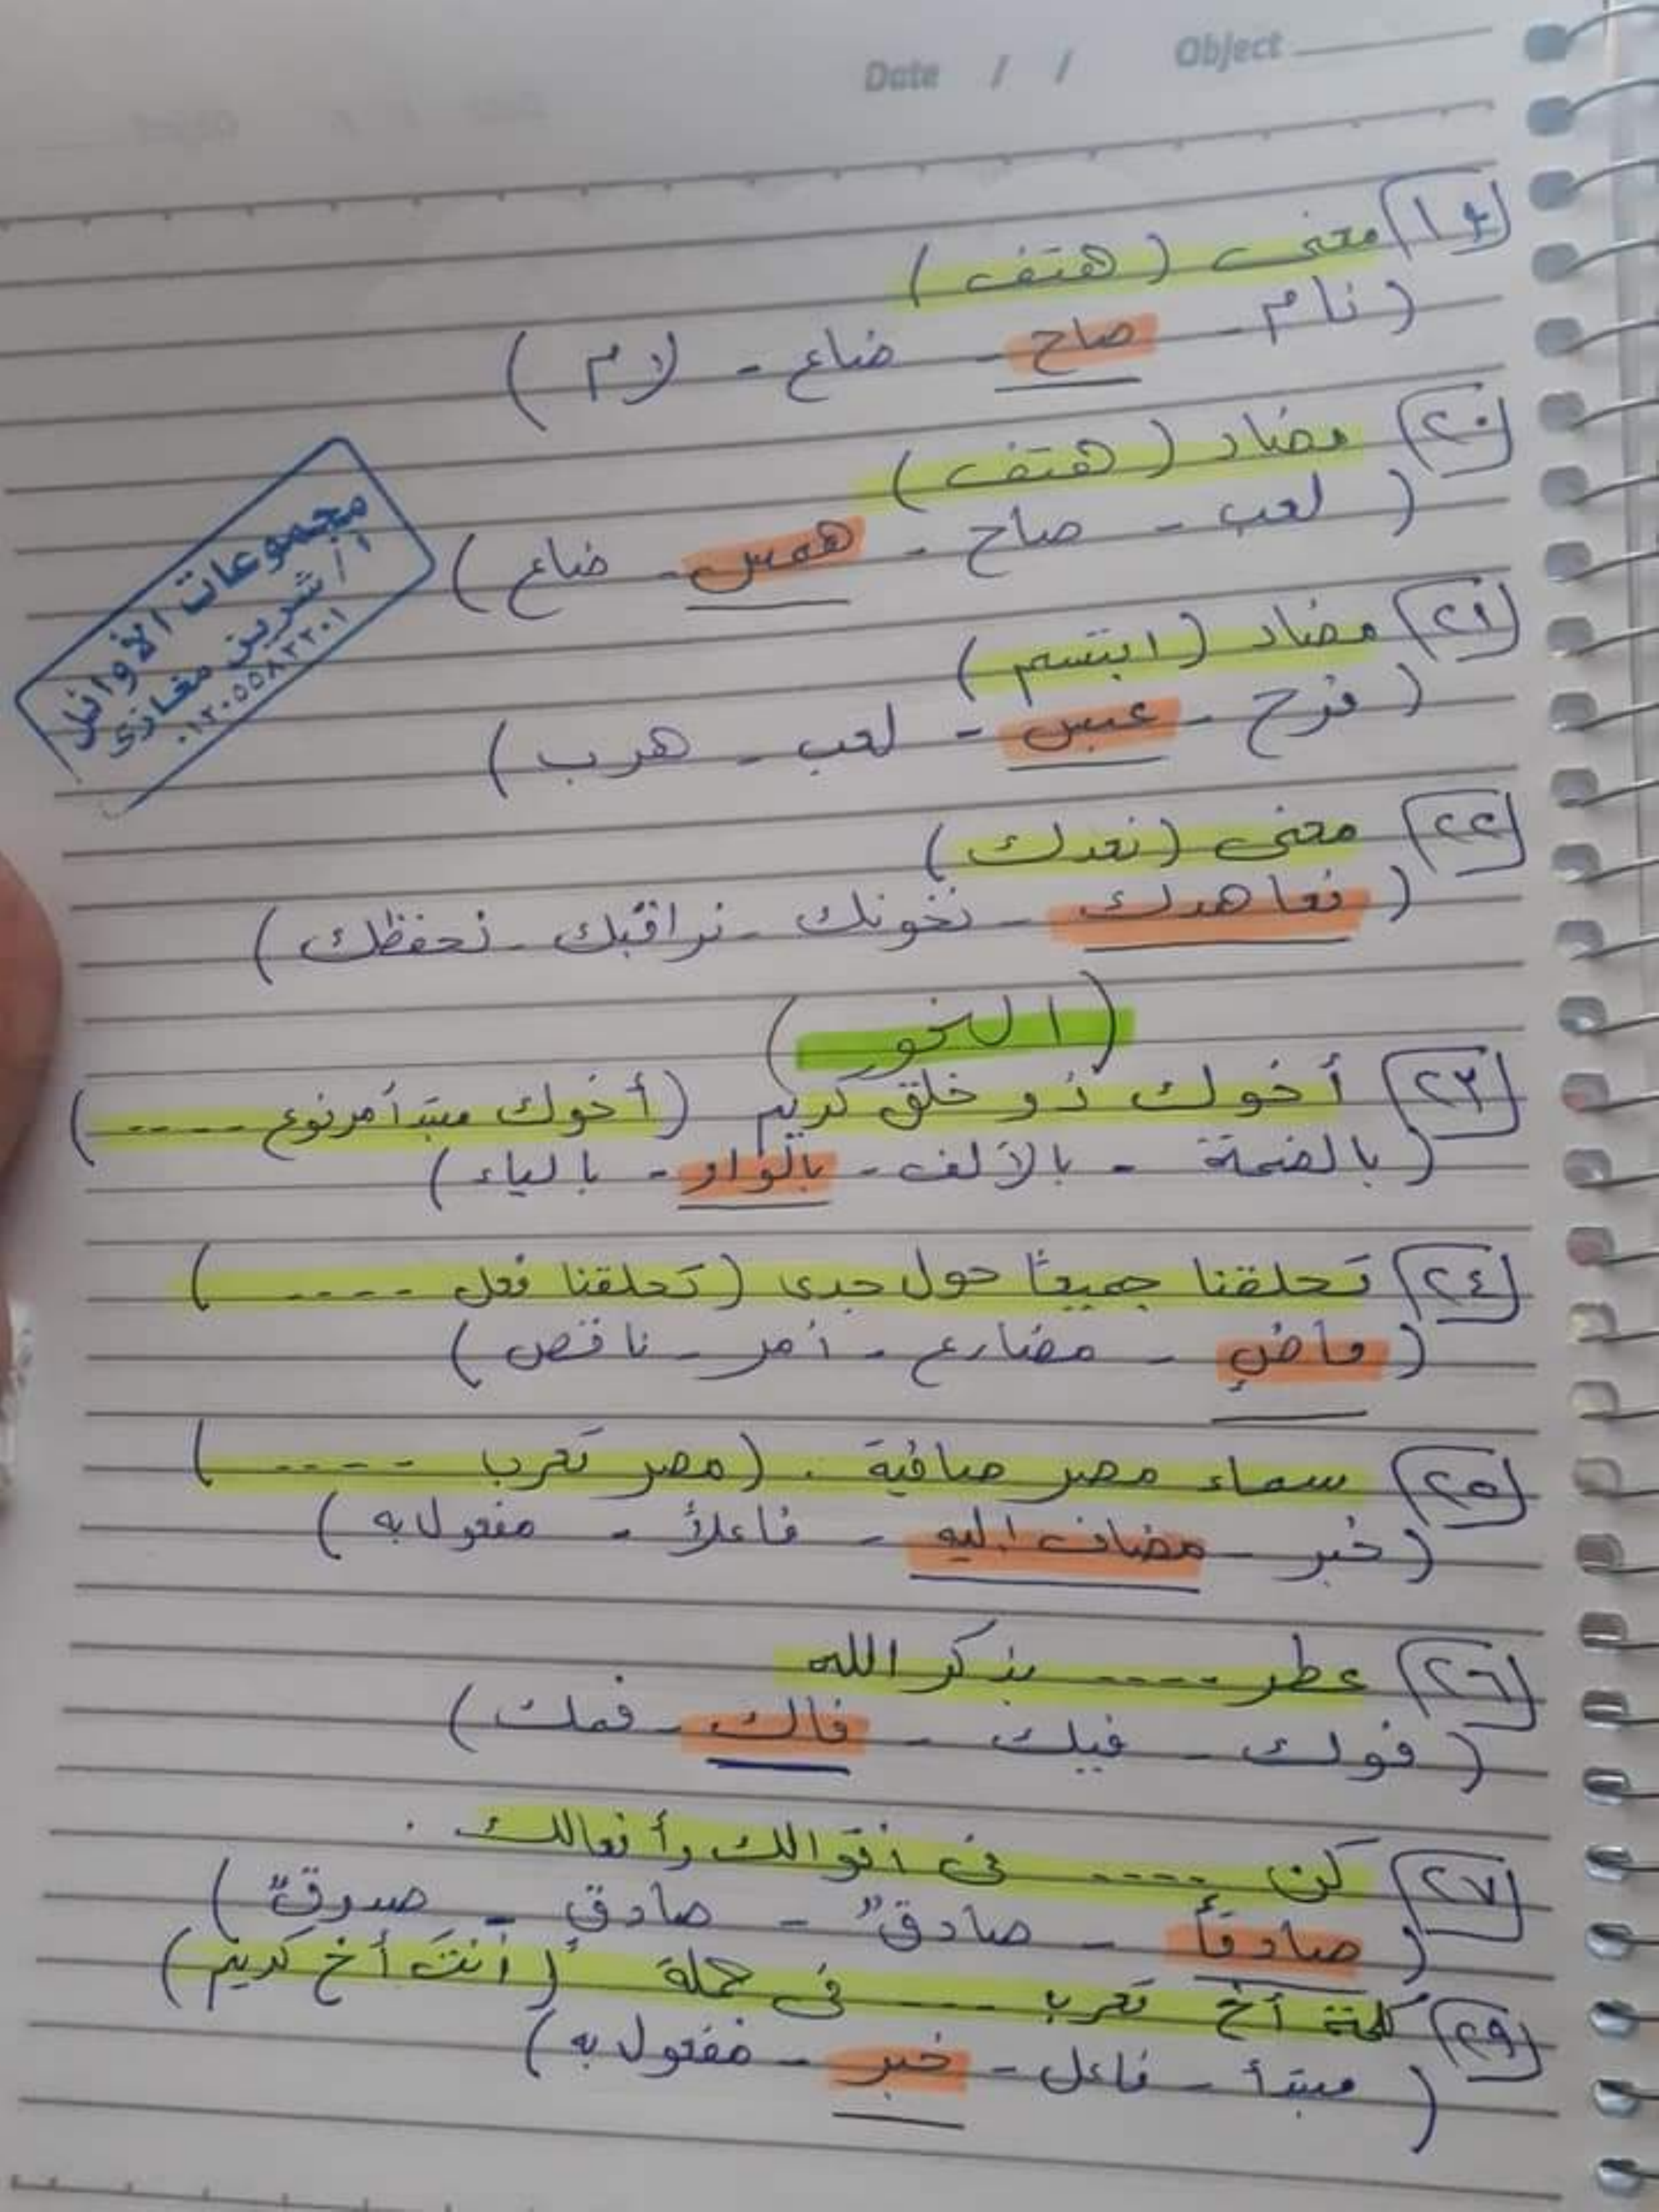 Date / / Object
١٩ معنى (هتف)
(نام - صاح - ضاع - لام)
٢٠ مضاد (هتف)
(لعب - صاح - همس - ضاع)
مجموعات الأوائل
أ/ شرين مغازى
٢١ مضاد (ابتسم)
(فرح - عبس - لعب - هرب)
٢٢ معنى (نعدك)
(نعاهدك - نخونك - نراقبك - نحفظك)
(النحو)
٢٣ أخوك ذو خلق كريم (أخوك مبتدأ مرفوع ----)
(بالضمة - بالألف - بالواو - بالياء)
٢٤ تحلقنا جميعًا حول جدى (تحلقنا فعل ----)
(ماضٍ - مضارع - أمر - ناقص)
٢٥ سماء مصر صافية . (مصر تعرب ----)
(خبر - مضاف إليه - فاعلاً - مفعول به)
٢٦ عطر ---- بذكر الله
(فوك - فيك - فاك - فمك)
٢٧ كن ---- فى أقوالك وأفعالك .
(صادقاً - صادقٌ - صادقٍ - صدوقٌ)
٢٩ كلمة أخ تعرب ---- فى جملة (أنتَ أخ كريم)
(مبتدأ - فاعل - خبر - مفعول به)